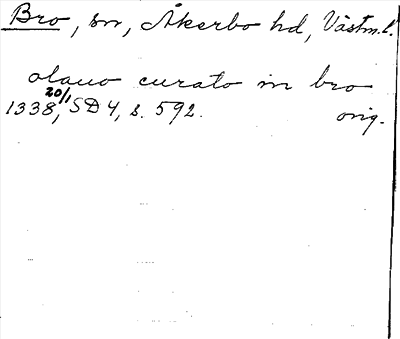 Bro, sn, Åkerbo hd, Västm.l.
olauo curato in bro
1338, 20/1 SD 4, s. 592. orig.